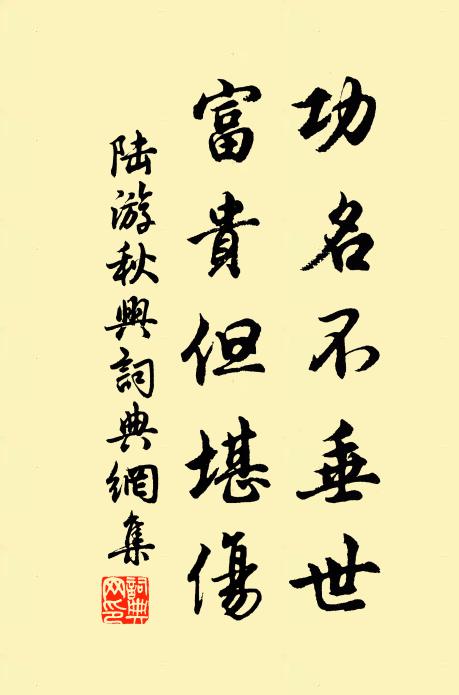 功名不垂世
富貴但堪傷
陸游秋興詞典網集
詞典網印